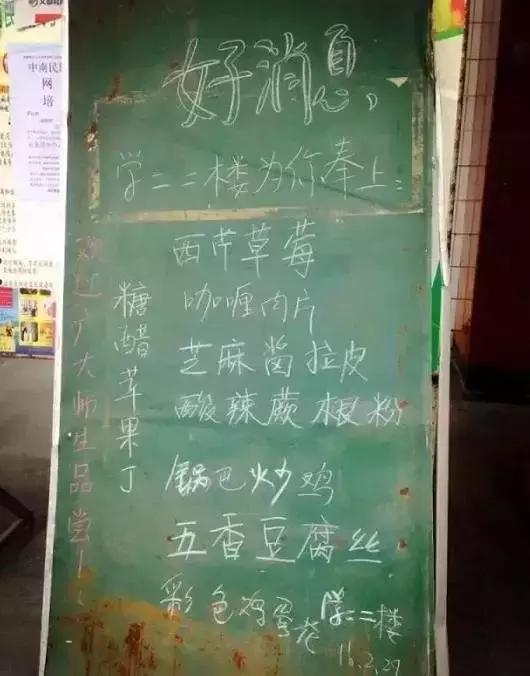 好消息
学二二楼为你奉上:
西芹草莓
咖喱肉片
芝麻酱拉皮
酸辣蕨根粉
锅巴炒鸡
五香豆腐丝
彩色鸡蛋卷
学二二楼
16.2.29
糖醋苹果丁
欢迎广大师生品尝!
中南民
网
培